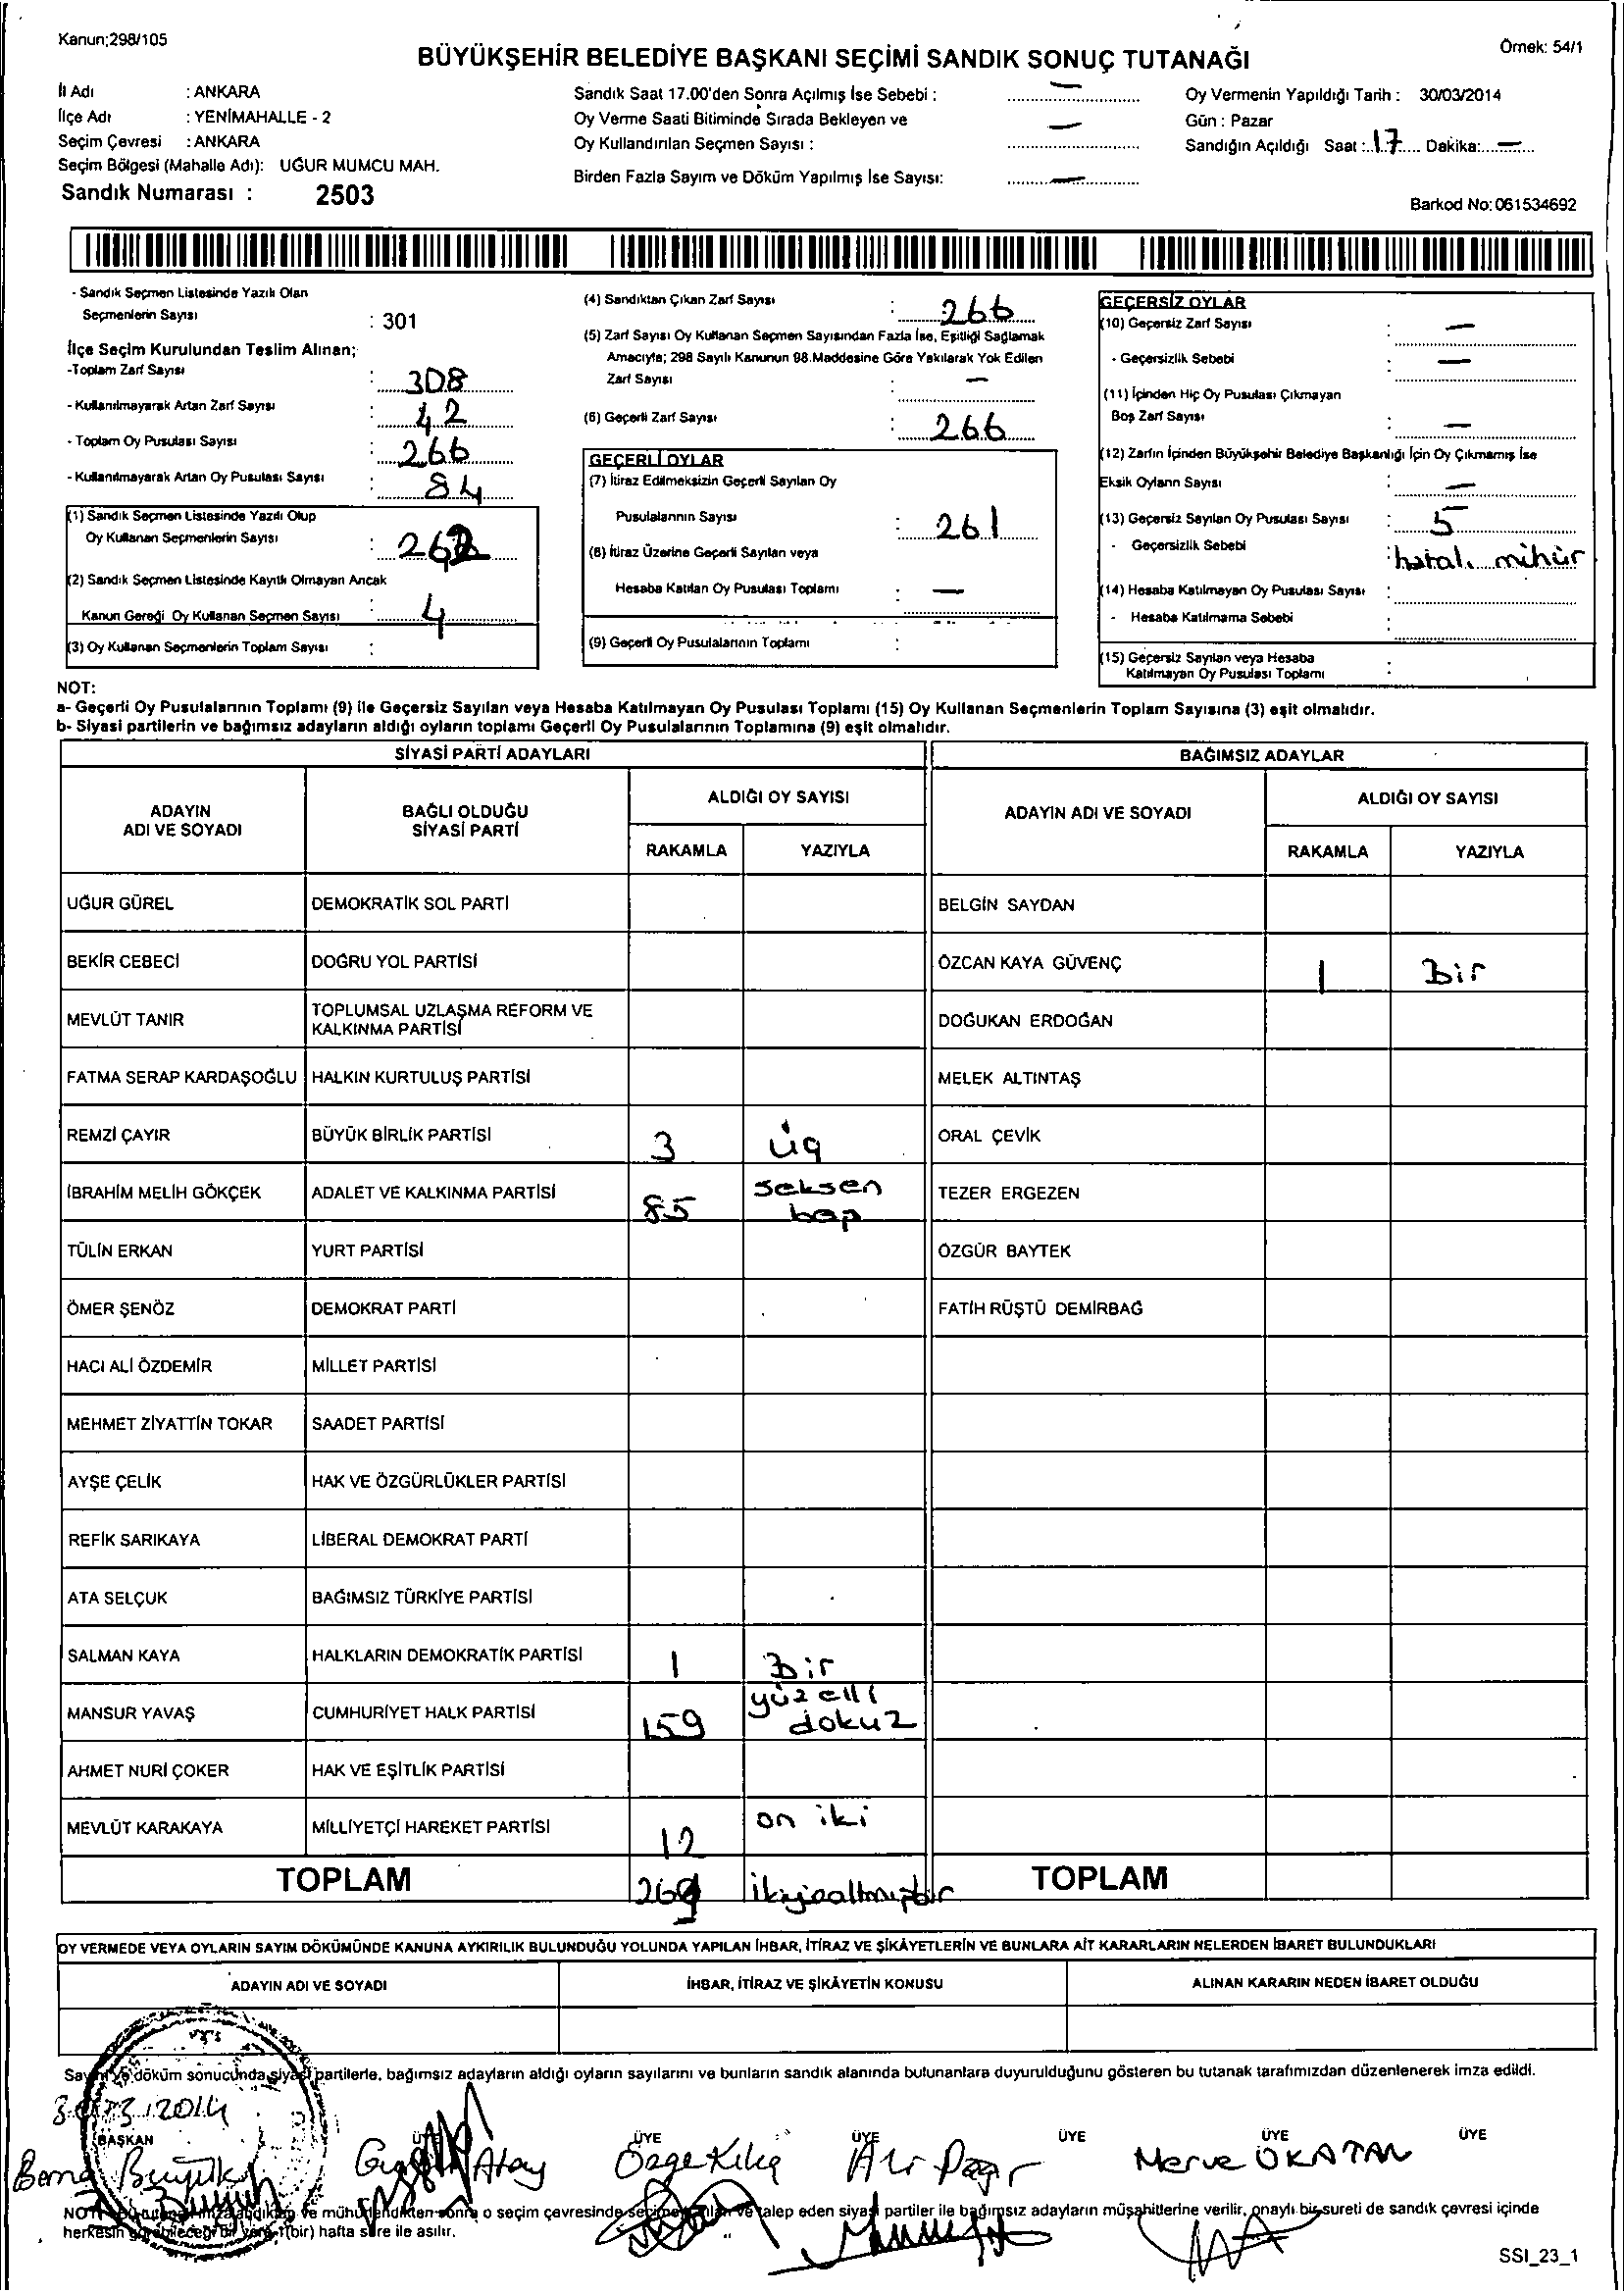 Kanun;298/105
Örnek: 54/1
BÜYÜKŞEHİR BELEDİYE BAŞKANI SEÇİMİ SANDIK SONUÇ TUTANAĞI
İl Adı : ANKARA
İlçe Adı : YENİMAHALLE - 2
Seçim Çevresi : ANKARA
Seçim Bölgesi (Mahalle Adı): UĞUR MUMCU MAH.
Sandık Numarası : 2503
Sandık Saat 17.00'den Sonra Açılmış İse Sebebi : —
Oy Verme Saati Bitiminde Sırada Bekleyen ve
Oy Kullandırılan Seçmen Sayısı : —
Birden Fazla Sayım ve Döküm Yapılmış İse Sayısı: —
Oy Vermenin Yapıldığı Tarih : 30/03/2014
Gün : Pazar
Sandığın Açıldığı Saat : 17 Dakika: —
Barkod No: 061534692
- Sandık Seçmen Listesinde Yazılı Olan
Seçmenlerin Sayısı : 301
İlçe Seçim Kurulundan Teslim Alınan;
-Toplam Zarf Sayısı : 308
- Kullanılmayarak Artan Zarf Sayısı : 42
- Toplam Oy Pusulası Sayısı : 266
- Kullanılmayarak Artan Oy Pusulası Sayısı : 84
(1) Sandık Seçmen Listesinde Yazılı Olup
Oy Kullanan Seçmenlerin Sayısı : 262
(2) Sandık Seçmen Listesinde Kayıtlı Olmayan Ancak
Kanun Gereği Oy Kullanan Seçmen Sayısı : 4
(3) Oy Kullanan Seçmenlerin Toplam Sayısı :
(4) Sandıktan Çıkan Zarf Sayısı : 266
(5) Zarf Sayısı Oy Kullanan Seçmen Sayısından Fazla İse, Eşitliği Sağlamak
Amacıyla; 298 Sayılı Kanunun 98.Maddesine Göre Yakılarak Yok Edilen
Zarf Sayısı : —
(6) Geçerli Zarf Sayısı : 266
GEÇERLİ OYLAR
(7) İtiraz Edilmeksizin Geçerli Sayılan Oy
Pusulalarının Sayısı : 261
(8) İtiraz Üzerine Geçerli Sayılan veya
Hesaba Katılan Oy Pusulası Toplamı : —
(9) Geçerli Oy Pusulalarının Toplamı :
GEÇERSİZ OYLAR
(10) Geçersiz Zarf Sayısı : —
- Geçersizlik Sebebi : —
(11) İçinden Hiç Oy Pusulası Çıkmayan
Boş Zarf Sayısı : —
(12) Zarfın İçinden Büyükşehir Belediye Başkanlığı İçin Oy Çıkmamış İse
Eksik Oyların Sayısı : —
(13) Geçersiz Sayılan Oy Pusulası Sayısı : 5
- Geçersizlik Sebebi : hatalı mühür
(14) Hesaba Katılmayan Oy Pusulası Sayısı :
- Hesaba Katılmama Sebebi :
(15) Geçersiz Sayılan veya Hesaba
Katılmayan Oy Pusulası Toplamı :
NOT:
a- Geçerli Oy Pusulalarının Toplamı (9) ile Geçersiz Sayılan veya Hesaba Katılmayan Oy Pusulası Toplamı (15) Oy Kullanan Seçmenlerin Toplam Sayısına (3) eşit olmalıdır.
b- Siyasi partilerin ve bağımsız adayların aldığı oyların toplamı Geçerli Oy Pusulalarının Toplamına (9) eşit olmalıdır.
SİYASİ PARTİ ADAYLARI
BAĞIMSIZ ADAYLAR
ADAYIN ADI VE SOYADI
BAĞLI OLDUĞU SİYASİ PARTİ
ALDIĞI OY SAYISI
RAKAMLA YAZIYLA
ADAYIN ADI VE SOYADI
ALDIĞI OY SAYISI
RAKAMLA YAZIYLA
UĞUR GÜREL DEMOKRATİK SOL PARTİ BELGİN SAYDAN
BEKİR CEBECİ DOĞRU YOL PARTİSİ ÖZCAN KAYA GÜVENÇ 1 Bir
MEVLÜT TANIR TOPLUMSAL UZLAŞMA REFORM VE KALKINMA PARTİSİ DOĞUKAN ERDOĞAN
FATMA SERAP KARDAŞOĞLU HALKIN KURTULUŞ PARTİSİ MELEK ALTINTAŞ
REMZİ ÇAYIR BÜYÜK BİRLİK PARTİSİ 3 üç ORAL ÇEVİK
İBRAHİM MELİH GÖKÇEK ADALET VE KALKINMA PARTİSİ 85 seksen beş TEZER ERGEZEN
TÜLİN ERKAN YURT PARTİSİ ÖZGÜR BAYTEK
ÖMER ŞENÖZ DEMOKRAT PARTİ FATİH RÜŞTÜ DEMİRBAĞ
HACI ALİ ÖZDEMİR MİLLET PARTİSİ
MEHMET ZİYATTİN TOKAR SAADET PARTİSİ
AYŞE ÇELİK HAK VE ÖZGÜRLÜKLER PARTİSİ
REFİK SARIKAYA LİBERAL DEMOKRAT PARTİ
ATA SELÇUK BAĞIMSIZ TÜRKİYE PARTİSİ
SALMAN KAYA HALKLARIN DEMOKRATİK PARTİSİ 1 Bir
MANSUR YAVAŞ CUMHURİYET HALK PARTİSİ 159 yüz elli dokuz
AHMET NURİ ÇOKER HAK VE EŞİTLİK PARTİSİ
MEVLÜT KARAKAYA MİLLİYETÇİ HAREKET PARTİSİ 12 on iki
TOPLAM 261 ikiyüzaltmışbir TOPLAM
OY VERMEDE VEYA OYLARIN SAYIM DÖKÜMÜNDE KANUNA AYKIRILIK BULUNDUĞU YOLUNDA YAPILAN İHBAR, İTİRAZ VE ŞİKÂYETLERİN VE BUNLARA AİT KARARLARIN NELERDEN İBARET BULUNDUKLARI
ADAYIN ADI VE SOYADI İHBAR, İTİRAZ VE ŞİKÂYETİN KONUSU ALINAN KARARIN NEDEN İBARET OLDUĞU
Sayım ve döküm sonucunda siyasi partilerle, bağımsız adayların aldığı oyların sayılarını ve bunların sandık alanında bulunanlara duyurulduğunu gösteren bu tutanak tarafımızdan düzenlenerek imza edildi.
30/03/2014
BAŞKAN ÜYE ÜYE ÜYE ÜYE ÜYE ÜYE
Atay Özge Kılıç Merve OKATAN
NOT: Bu tutanak imzalandıktan ve mühürlendikten sonra o seçim çevresinde talep eden siyasi partiler ile bağımsız adayların müşahitlerine verilir, onaylı bir sureti de sandık çevresi içinde
herkesin görebileceği bir yere 1(bir) hafta süre ile asılır.
SSI_23_1